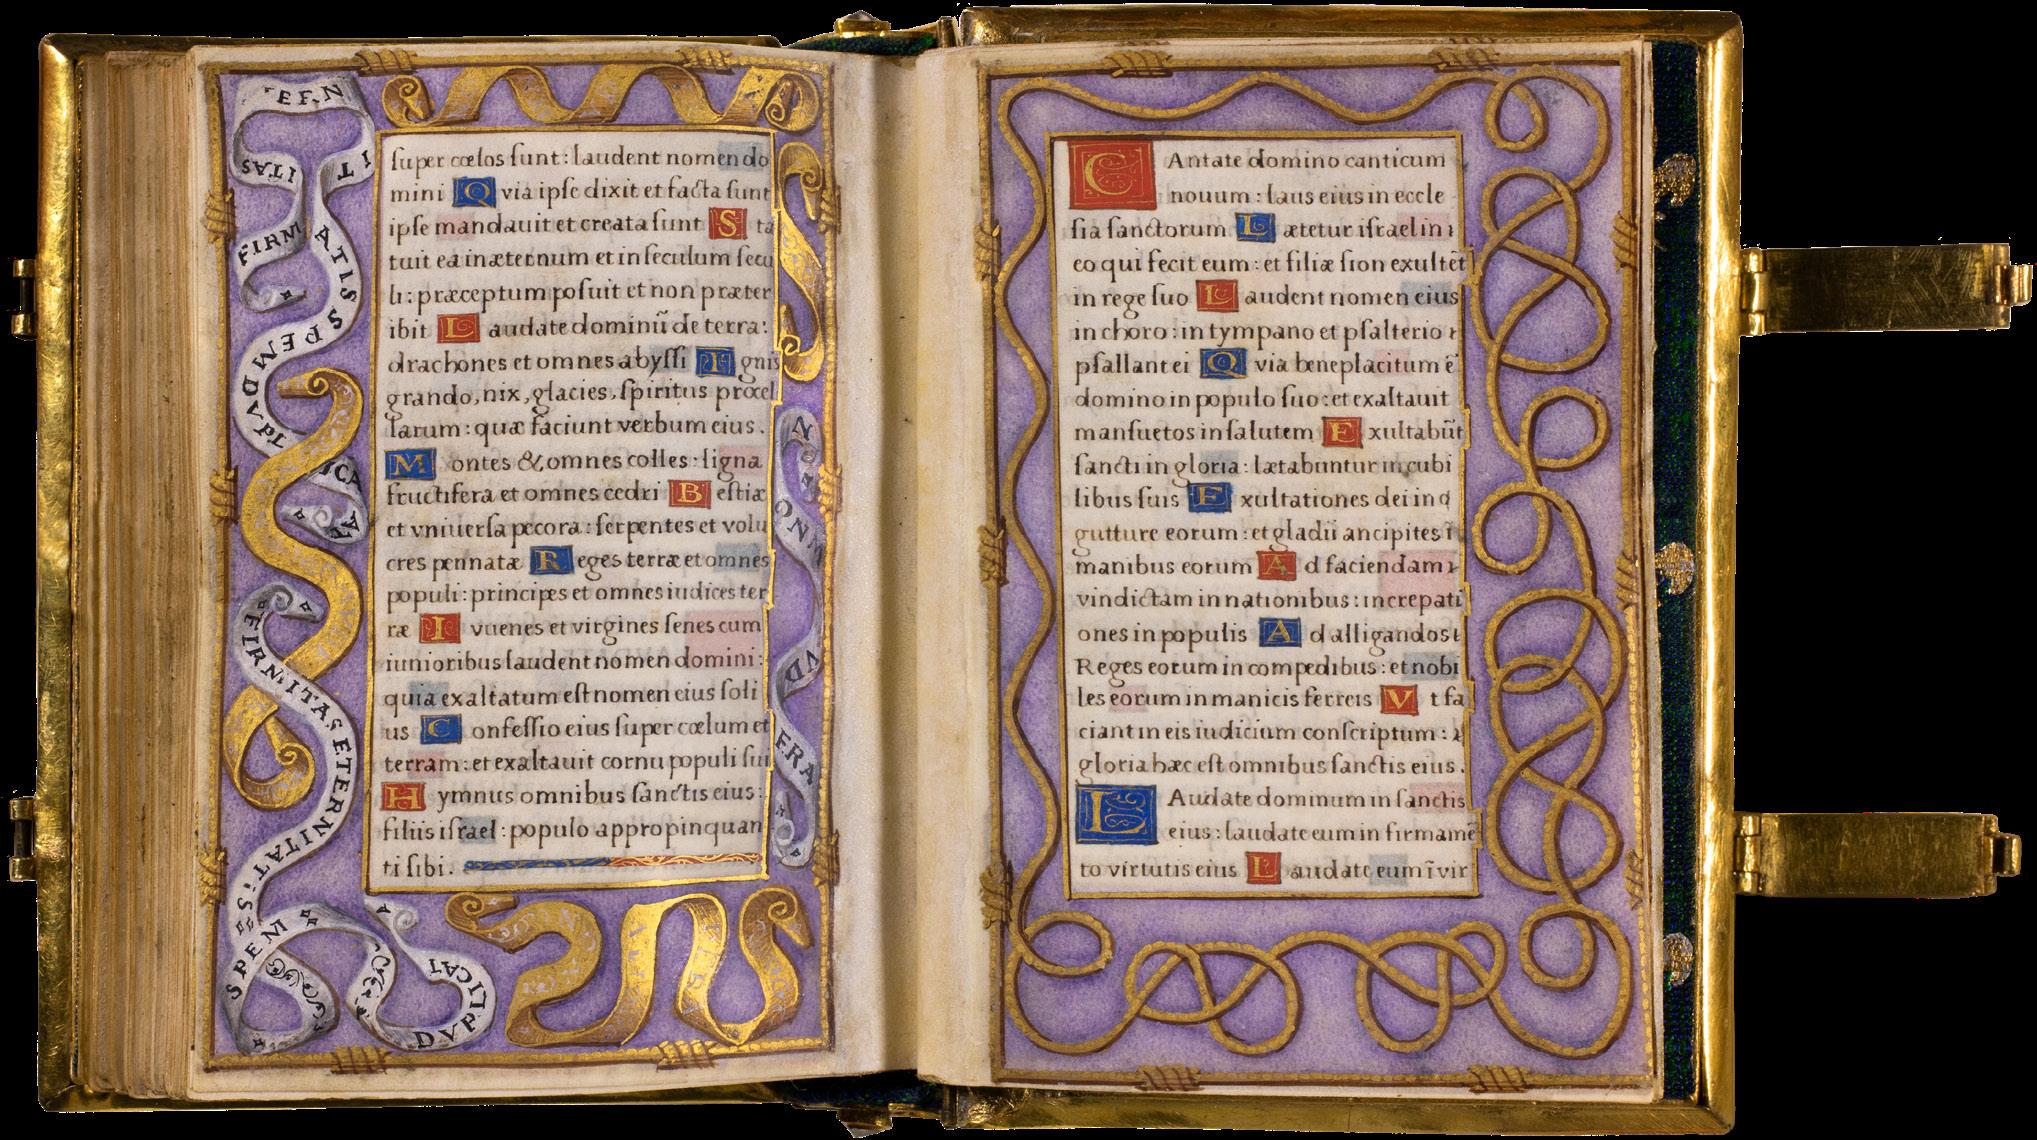 super cœlos sunt : laudent nomen do
mini Q via ipse dixit et facta sunt
ipse mandauit et creata sunt S ta
tuit ea in æternum et in seculum secu
li : præceptum posuit et non præter
ibit L audate dominū de terra :
drachones et omnes abyssi I gnis
grando, nix, glacies, spiritus procel
larum : quæ faciunt verbum eius .
M ontes & omnes colles : ligna
fructifera et omnes cedri B estiæ
et vniuersa pecora : serpentes et volu
cres pennatæ R eges terræ et omnes
populi : principes et omnes iudices ter
ræ I vuenes et virgines senes cum
iunioribus laudent nomen domini :
quia exaltatum est nomen eius soli
us C onfessio eius super cœlum et
terram : et exaltauit cornu populi sui
H ymnus omnibus sanctis eius :
filiis israel : populo appropinquan
ti sibi .
FIRMITAS ETERNITATIS
SPEM
DVPLICAT
FIRM
ITAS
EERN
IT
ATIS SPEM DVPL
ICA
NON
VD
ERA
C Antate domino canticum
nouum : laus eius in eccle
sia sanctorum L ætetur israel in
eo qui fecit eum : et filiæ sion exultēt
in rege suo L audent nomen eius
in choro : in tympano et psalterio
psallant ei Q via beneplacitum ē
domino in populo suo : et exaltauit
mansuetos in salutem E xultabūt
sancti in gloria : lætabuntur in cubi
libus suis E xultationes dei in
gutture eorum : et gladii ancipites ī
manibus eorum A d faciendam
vindictam in nationibus : increpati
ones in populis A d alligandos
Reges eorum in compedibus : et nobi
les eorum in manicis ferreis V t fa
ciant in eis iudicium conscriptum :
gloria hæc est omnibus sanctis eius .
L Audate dominum in sanctis
eius : laudate eum in firmamē
to virtutis eius L audate eum ī vir